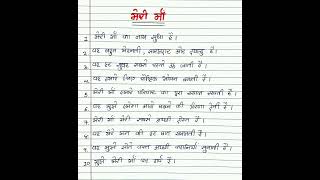 मेरी माँ
1 मेरी माँ का नाम सुधा है।
2 वह बहुत मेहनती, समझदार और दयालु है।
3 वह हर सुबह सबसे पहले उठ जाती है।
4 वह हमारे लिए पौष्टिक भोजन बनाती है।
5 मेरी माँ हमारे परिवार का पूरा ख्याल रखती है।
6 वह मुझे हमेशा आगे बढ़ने की प्रेरणा देती है।
7 मेरी माँ मेरी सबसे अच्छी दोस्त है।
8 वह मेरे मन की हर बात समझती है।
9 वह मुझे सोते वक्त अच्छी कहानियाँ सुनाती है।
10 मुझे मेरी माँ पर गर्व है।